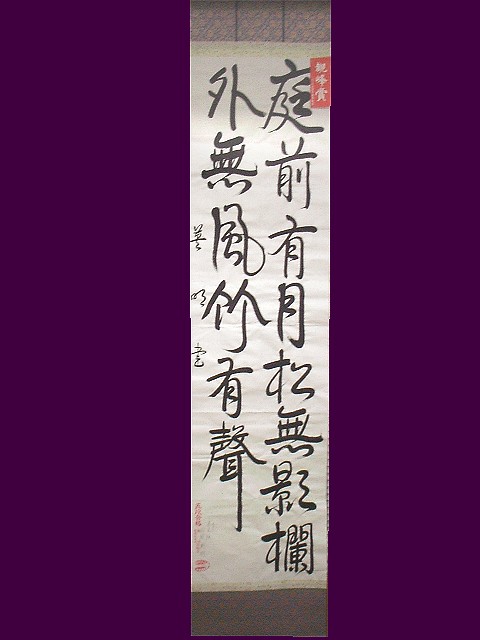 庭前有月松無影欄
外無風竹有聲